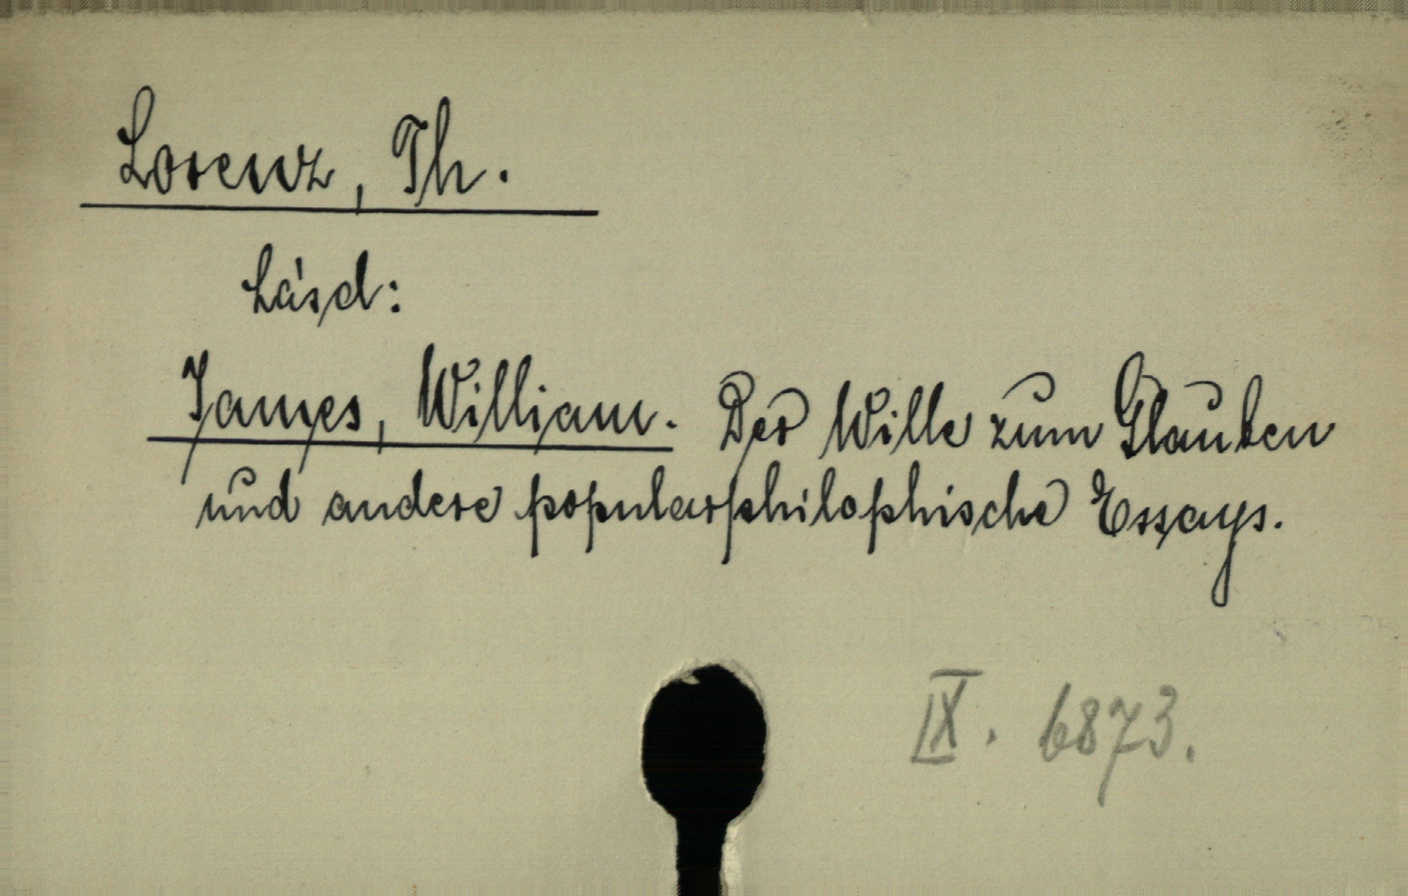 Lorenz, Th.
Lásd:
James, William. Der Wille zum Glauben
und andere popularphilophische Essays.
IX. 6873.